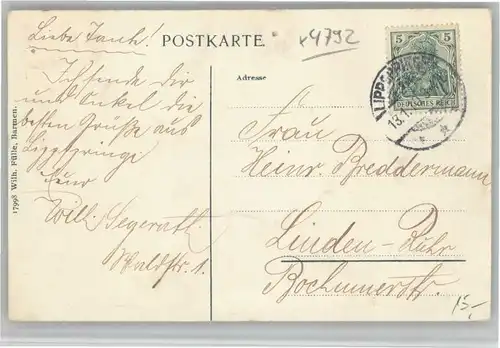 Liebe Tante!
POSTKARTE.
x4792
Ich sende dir
und Onkel die
besten Grüße aus
Lippspringe
Euer
Willi Segerath
Waldstr. 1.
17998 Wilh. Fülle, Barmen.
Adresse
5 5
DEUTSCHES REICH
LIPPSPRINGE
13.1
Frau
Heinr. Breddermann
Linden-Ruhr
Bochumerstr.
15,-